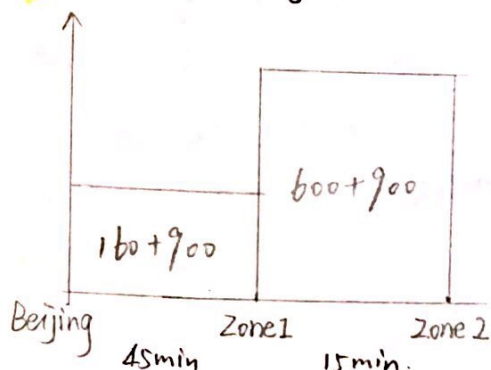 600+900
160+900
Beijing Zone1 Zone 2
45min 15min.